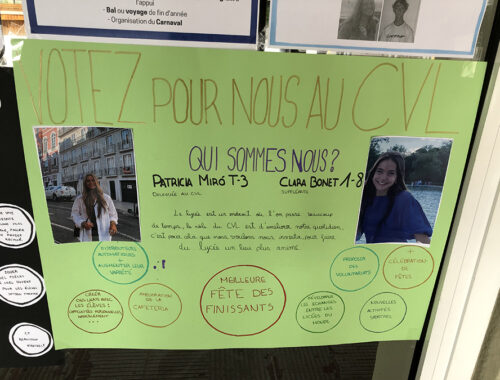 l'appui
- Bal ou voyage de fin d'année
- Organisation du Carnaval
VOTEZ POUR NOUS AU CVL
QUI SOMMES NOUS?
PATRICIA MIRÓ T-3
DÉLÉGUÉE AU CVL
CLARA BONET 1-8
SUPPLÉANTE
Le lycée est un endroit où l'on passe beaucoup
de temps, le rôle du CVL est d'améliorer notre quotidien.
C'est pour cela que nous voudrions nous investir pour faire
du lycée un lieu plus animé.
DISTRIBUTEURS
AUTOMATIQUES
+
AUGMENTER LEUR
VARIÉTÉ
CRÉER
DES LIENS AVEC
LES ÉLÈVES:
DIFFICULTÉS PERSONNELLES
HARCÈLEMENT
...
AMÉLIORATION DE LA
CAFÉTERIA
MEILLEURE
FÊTE DES
FINISSANTS
DÉVELOPPER
LES ÉCHANGES
ENTRE LES
LYCÉES DU
MONDE
PROPOSER
DES
VOLONTARIATS
+
CÉLÉBRATION DE
FÊTES
NOUVELLES
ACTIVITÉS